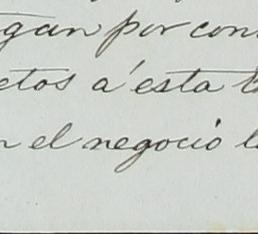 gan por con
etos a' esta
n el negocio l